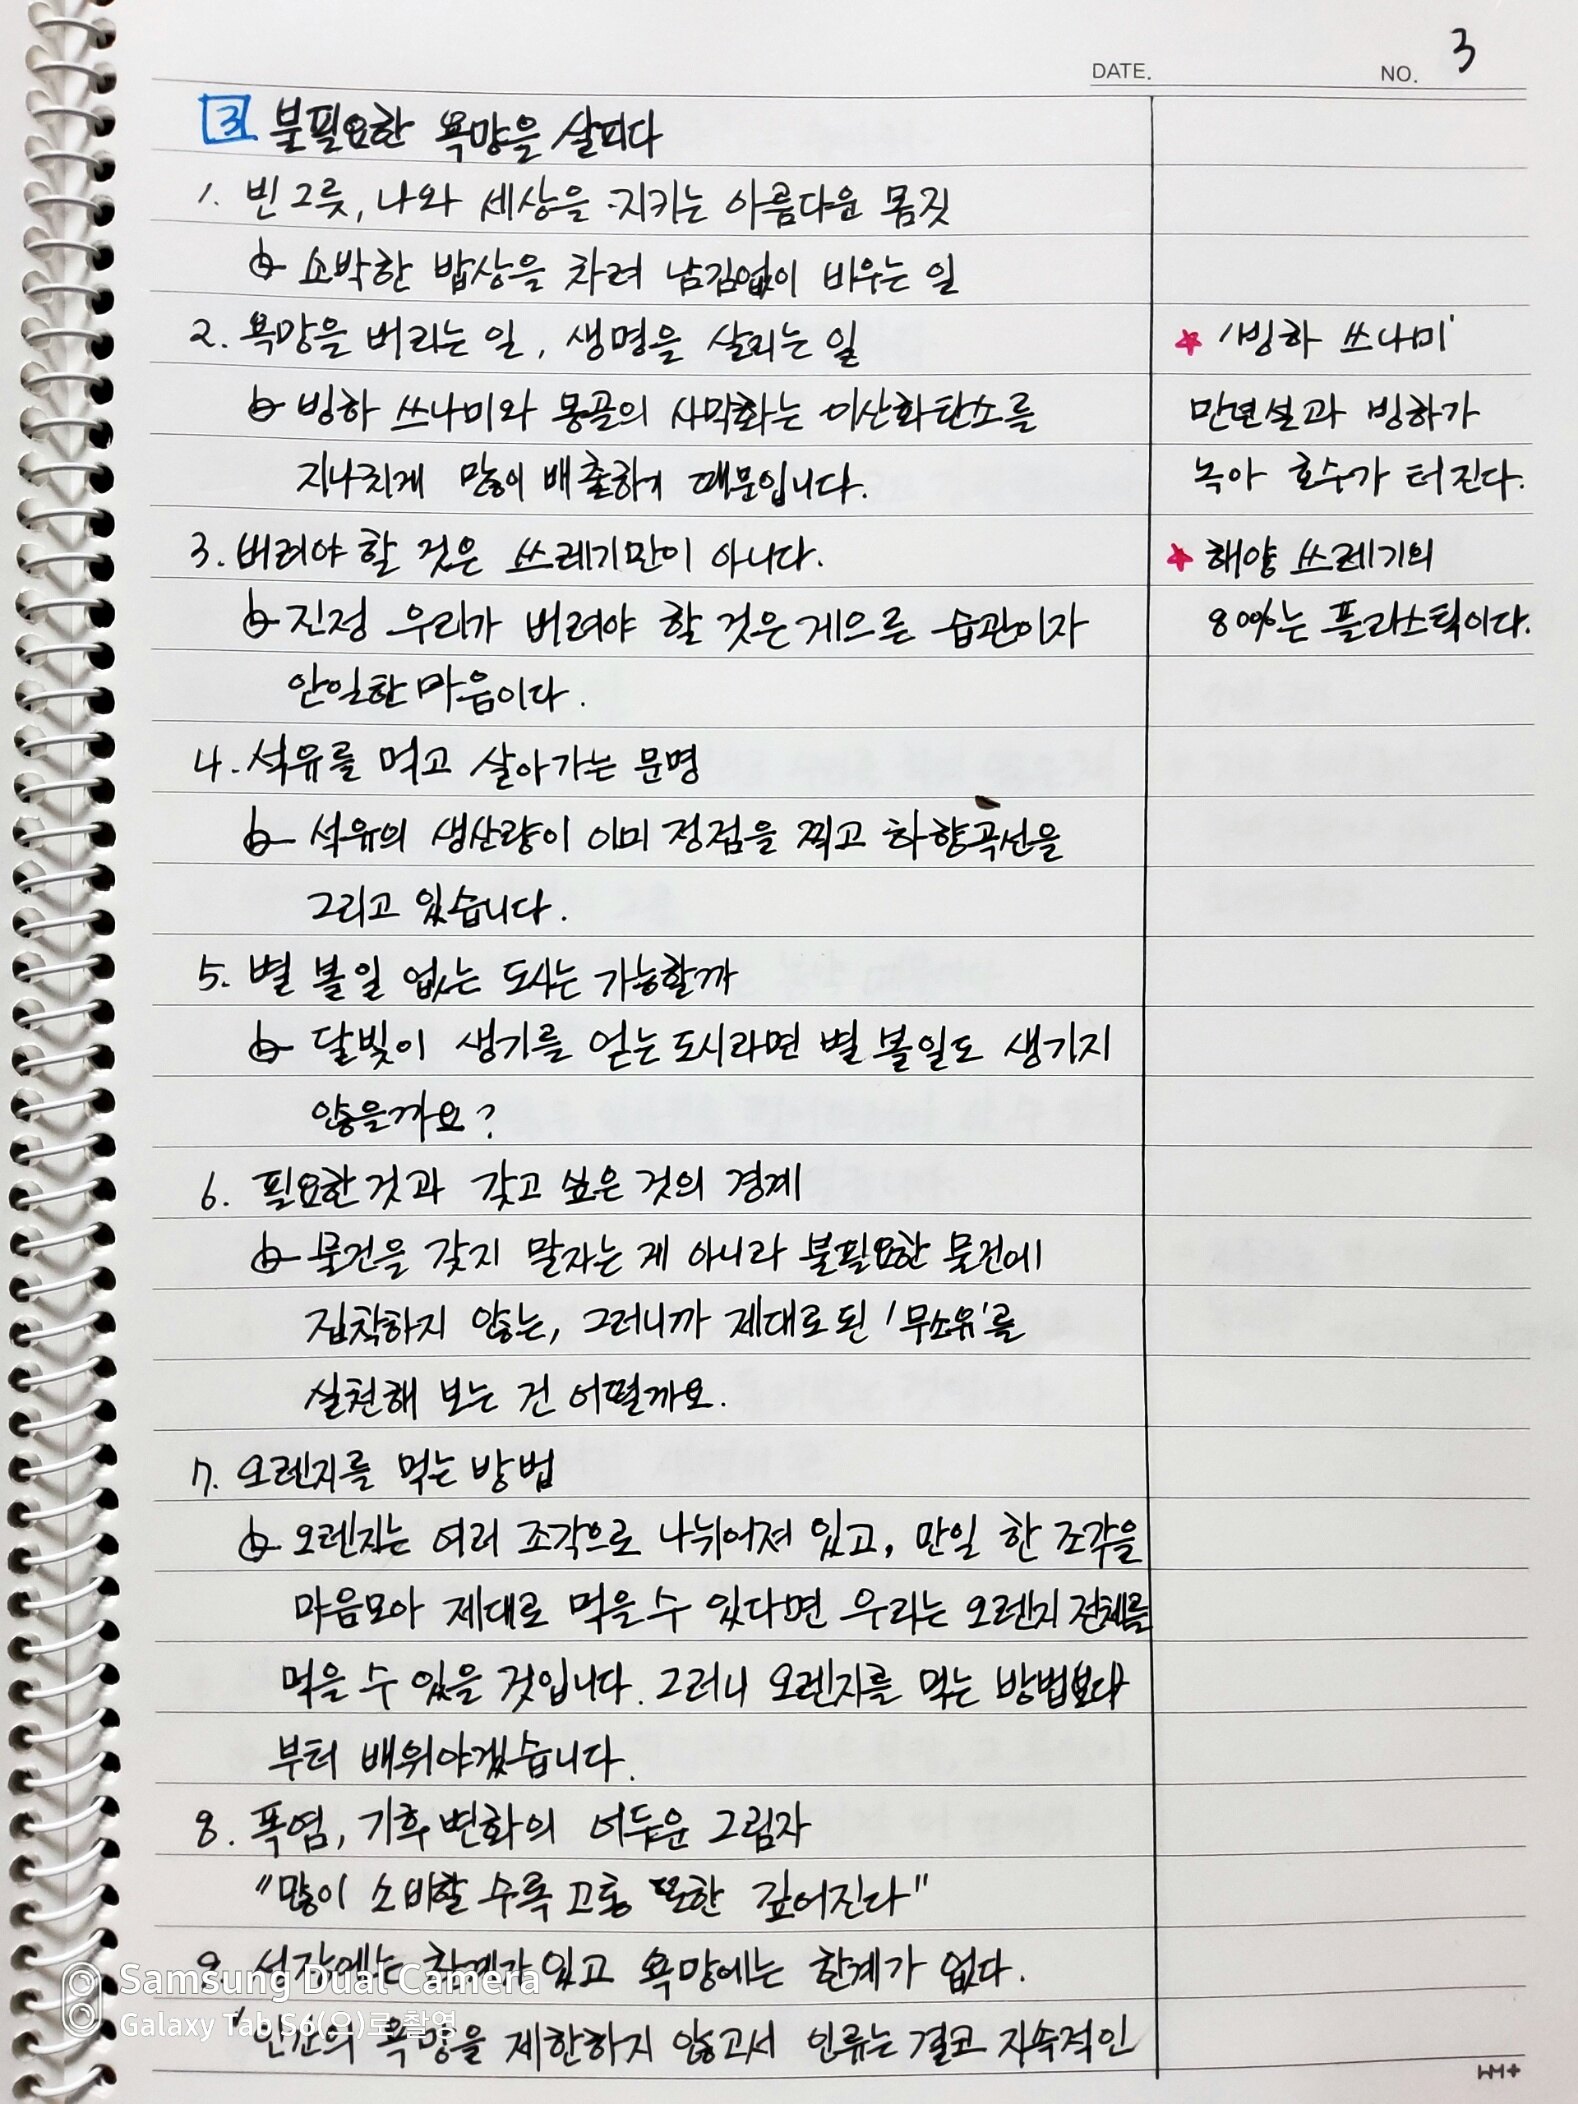 DATE.
NO. 3
3 불필요한 욕망을 살피다
1. 빈그릇, 나와 세상을 지키는 아름다운 몸짓
소박한 밥상을 차려 남김없이 비우는 일
2. 욕망을 버리는 일, 생명을 살리는 일
빙하 쓰나미와 몽골의 사막화는 이산화탄소를
지나치게 많이 배출하기 때문입니다.
3. 버려야 할 것은 쓰레기만이 아니다.
진정 우리가 버려야 할 것은 게으른 습관이자
안일한 마음이다.
4. 석유를 먹고 살아가는 문명
석유의 생산량이 이미 정점을 찍고 하향곡선을
그리고 있습니다.
5. 별 볼일 없는 도시는 가능할까
달빛이 생기를 얻는 도시라면 별 볼일도 생기지
않을까요?
6. 필요한 것과 갖고 싶은 것의 경계
물건을 갖지 말자는 게 아니라 불필요한 물건에
집착하지 않는, 그러니까 제대로 된 '무소유'를
실천해 보는 건 어떨까요.
7. 오렌지를 먹는 방법
오렌지는 여러 조각으로 나뉘어져 있고, 만일 한 조각을
마음모아 제대로 먹을 수 있다면 우리는 오렌지 전체를
먹을 수 있을 것입니다. 그러니 오렌지를 먹는 방법보다
부터 배워야겠습니다.
8. 폭염, 기후변화의 어두운 그림자
"많이 소비할 수록 고통 또한 깊어진다"
9. 성장에는 한계가 있고 욕망에는 한계가 없다.
"인간의 욕망을 제한하지 않고서 인류는 결코 지속적인
★ '빙하 쓰나미'
만년설과 빙하가
녹아 호수가 터진다.
★ 해양 쓰레기의
80%는 플라스틱이다.
Samsung Dual Camera
Galaxy Tab S6(으)로 촬영